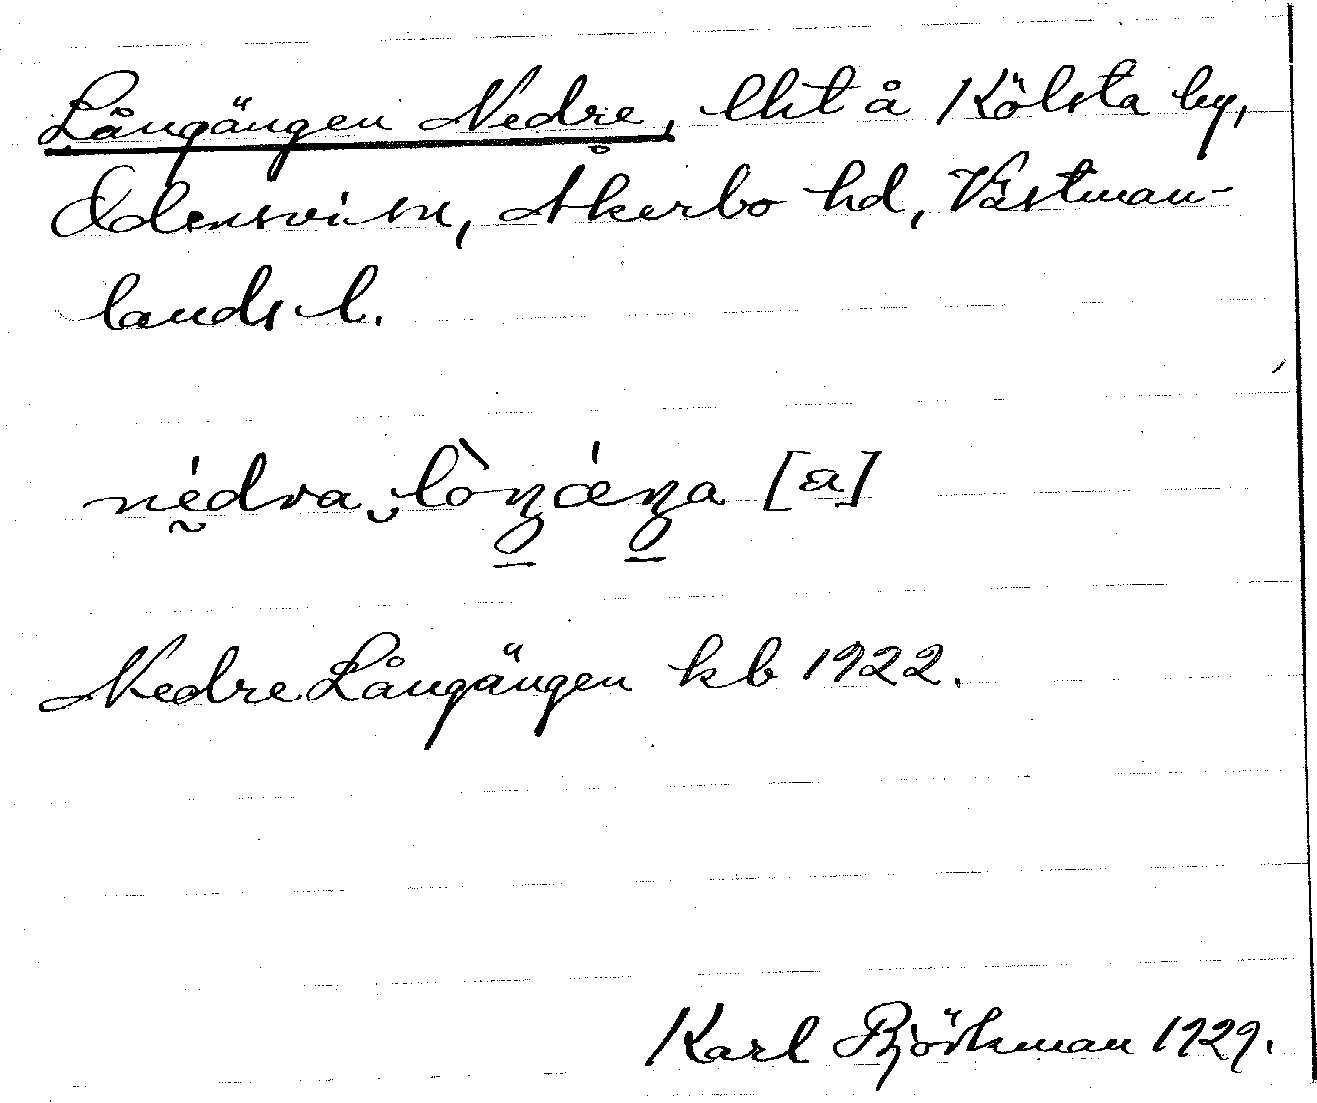 Långängen Nedre, lht å Kölsta by,
Odensvi sn, Åkerbo hd, Västman-
lands l.
nédra lòŋǽŋa [a]
Nedre Långängen kb 1922.
Karl Björkman 1929.